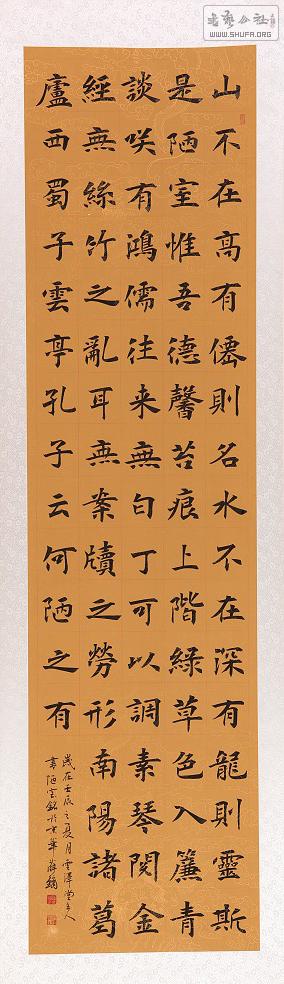 书艺公社
WWW.SHUFA.ORG
山不在高有僊則名水不在深有龍則靈斯
是陋室惟吾德馨苔痕上階綠草色入簾青
談咲有鴻儒往来無白丁可以調素琴閱金
經無絲竹之亂耳無案牘之勞形南陽諸葛
廬西蜀子雲亭孔子云何陋之有
歲在壬辰之夏月雲澤堂主人
書陋室銘於京華